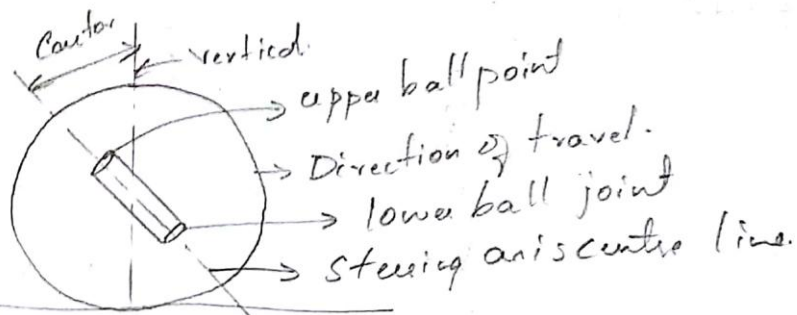 Caster
vertical.
upper ball point
Direction of travel.
lower ball joint
Steering axis centre line.